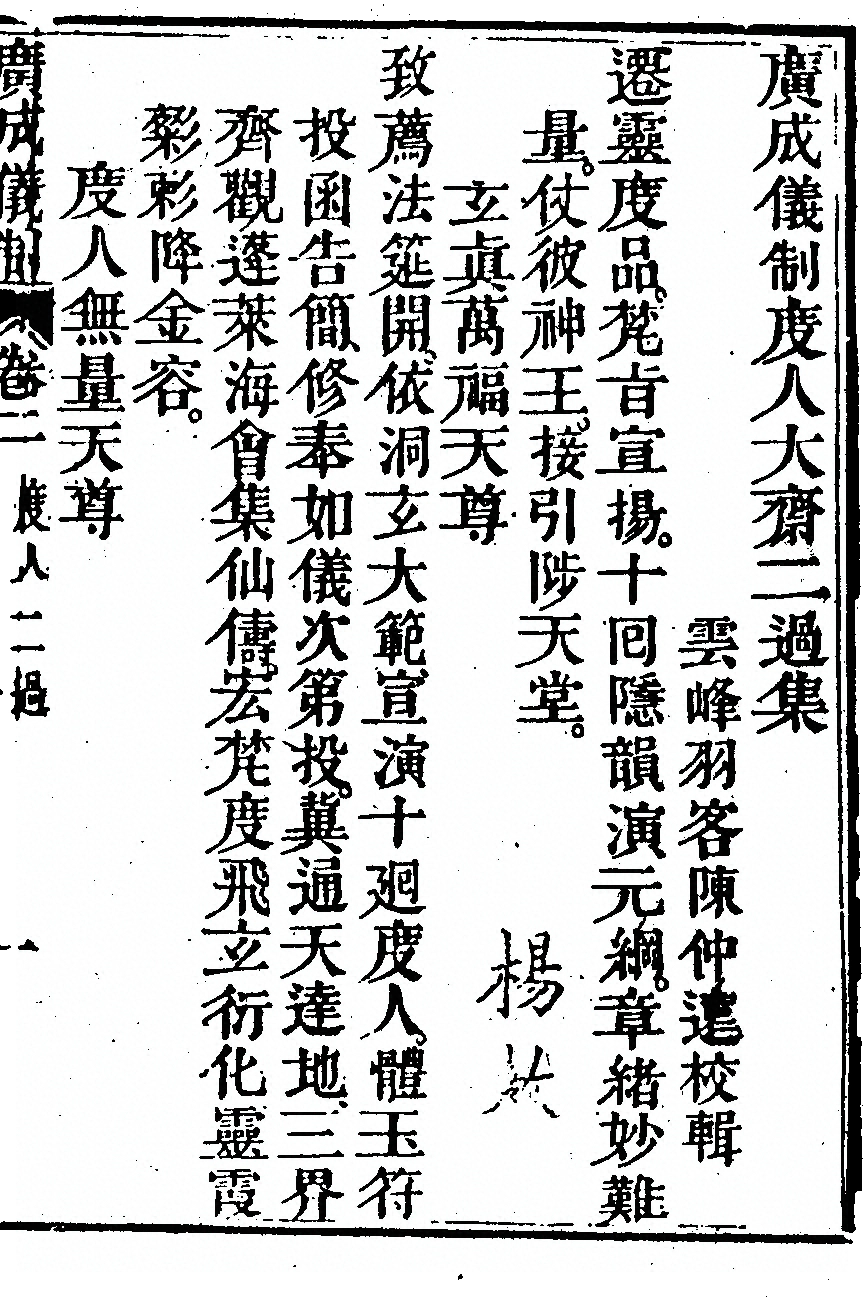 廣成儀制度人大齋二過集
雲峰羽客陳仲遠校輯
遷靈度品。梵音宣揚。十回隱韻演元綱。章緒妙難
量。仗彼神王。接引陟天堂。
玄眞萬福天尊
致薦法筵開。依洞玄大範宣演十廻度人。體玉符
投函告簡修奉如儀次第投。冀通天達地、三界
齊觀蓬萊海會集仙儔。宏梵度飛玄衍化靈霞
彩降金容。
度人無量天尊
廣成儀制 卷二 度人二過 一
楊